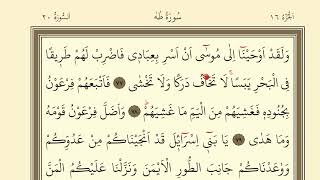 الجزء ١٦ سورة طه السورة ٢٠
وَلَقَدْ اَوْحَيْنَٓا اِلٰى مُوسٰٓى اَنْ اَسْرِ بِعِبَادٖى فَاضْرِبْ لَهُمْ طَرٖيقًا
فِى الْبَحْرِ يَبَسًا لَا تَخَافُ دَرَكًا وَلَا تَخْشٰى ﴿٧٧﴾ فَاَتْبَعَهُمْ فِرْعَوْنُ
بِجُنُودِهٖ فَغَشِيَهُمْ مِنَ الْيَمِّ مَا غَشِيَهُمْ ﴿٧٨﴾ وَاَضَلَّ فِرْعَوْنُ قَوْمَهُ
وَمَا هَدٰى ﴿٧٩﴾ يَا بَنٖٓى اِسْرَٓائٖلَ قَدْ اَنْجَيْنَاكُمْ مِنْ عَدُوِّكُمْ
وَوٰعَدْنَاكُمْ جَانِبَ الطُّورِ الْاَيْمَنَ وَنَزَّلْنَا عَلَيْكُمُ الْمَنَّ